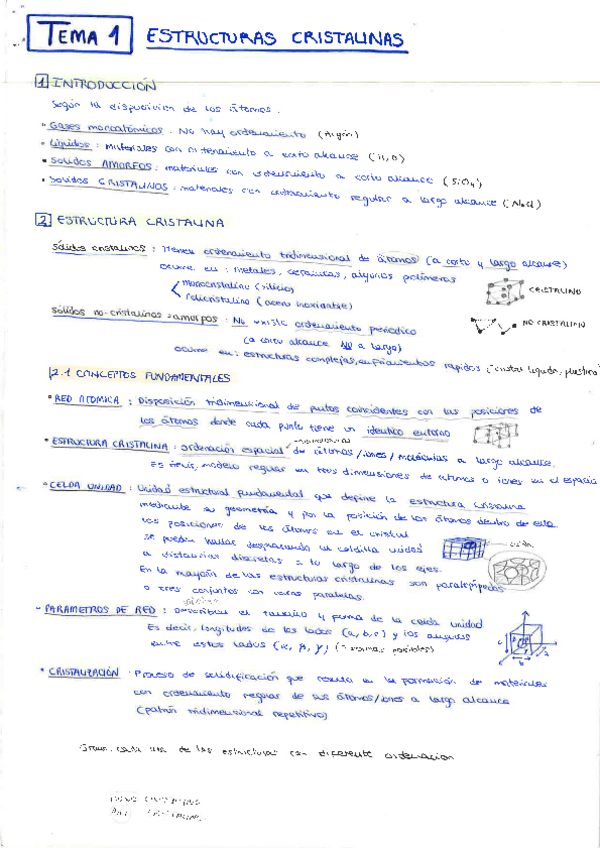 TEMA 1 ESTRUCTURAS CRISTALINAS
1 INTRODUCCIÓN
Según la disposición de los átomos.
• Gases monoatómicos. No hay ordenamiento (Argón)
• Líquidos: Materiales con ordenamiento a corto alcance (H2O)
• Sólidos AMORFOS: materiales con ordenamiento a corto alcance (SiO4)
• Sólidos CRISTALINOS: materiales con ordenamiento regular a largo alcance (NaCl)
2 ESTRUCTURA CRISTALINA
Sólidos cristalinos: tienen ordenamiento tridimensional de átomos (a corto y largo alcance)
ocurre en: metales, cerámicas, algunos polímeros
monocristalino (silicio)
Policristalino (acero inoxidable)
CRISTALINO
Sólidos no-cristalinos = amorfos: No existe ordenamiento periodico
NO CRISTALINO
(a corto alcance NO a largo)
ocurre en: estructuras complejas, enfriamientos rápidos, cristal líquido, plástico
2.1 CONCEPTOS FUNDAMENTALES
• RED ATOMICA: Disposición tridimensional de puntos coincidentes con las posiciones de
los átomos donde cada punto tiene un identico entorno
• ESTRUCTURA CRISTALINA: ordenación espacial de átomos/iones/moléculas a largo alcance.
Es decir, modelo regular en tres dimensiones de átomos o iones en el espacio
• CELDA UNIDAD: Unidad estructural fundamental que define la estructura cristalina
mediante su geometría y por la posición de los átomos dentro de ella
las posiciones de los átomos en el cristal
se pueden hallar desplazando la celdilla unidad
a distancias discretas a lo largo de los ejes.
En la mayoría de las estructuras cristalinas son paralepípedos
o tres conjuntos con caras paralelas.
- PARAMETROS DE RED: Describen el tamaño y forma de la celda unidad
Es decir, longitudes de los lados (a, b, c) y los angulos
entre estos lados (α, β, γ)
• CRISTALIZACIÓN: Proceso de solidificación que resulta en la formación de materiales
con ordenamiento regular de sus átomos/iones a largo alcance
(patrón tridimensional repetitivo)
Grano: cada una de las estructuras con diferente ordenacion